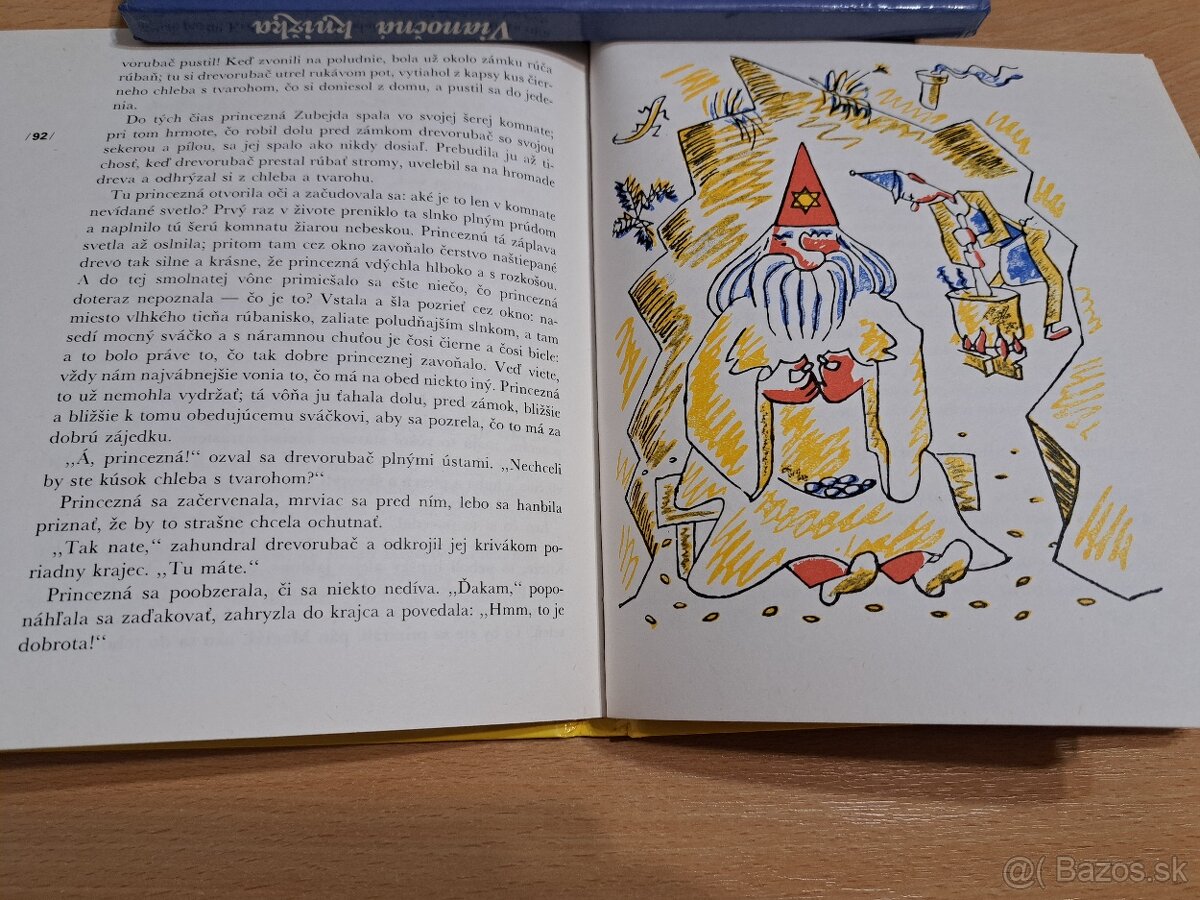 Vianočná knižka
vorubač pustil! Keď zvonili na poludnie, bola už okolo zámku rúča
rúbaň; tu si drevorubač utrel rukávom pot, vytiahol z kapsy kus čier-
neho chleba s tvarohom, čo si doniesol z domu, a pustil sa do jede-
nia.
/92/
Do tých čias princezná Zubejda spala vo svojej šerej komnate;
pri tom hrmote, čo robil dolu pred zámkom drevorubač so svojou
sekerou a pílou, sa jej spalo ako nikdy dosiaľ. Prebudila ju až ti-
chosť, keď drevorubač prestal rúbať stromy, uvelebil sa na hromade
dreva a odhrýzal si z chleba a tvarohu.
Tu princezná otvorila oči a začudovala sa: aké je to len v komnate
nevídané svetlo? Prvý raz v živote preniklo ta slnko plným prúdom
a naplnilo tú šerú komnatu žiarou nebeskou. Princeznú tá záplava
svetla až oslnila; pritom tam cez okno zavoňalo čerstvo naštiepané
drevo tak silne a krásne, že princezná vdýchla hlboko a s rozkošou.
A do tej smolnatej vône primiešalo sa ešte niečo, čo princezná
doteraz nepoznala — čo je to? Vstala a šla pozrieť cez okno: na-
miesto vlhkého tieňa rúbanisko, zaliate poludňajším slnkom, a tam
sedí mocný sváčko a s náramnou chuťou je čosi čierne a čosi biele:
a to bolo práve to, čo tak dobre princeznej zavoňalo. Veď viete,
vždy nám najvábnejšie vonia to, čo má na obed niekto iný. Princezná
to už nemohla vydržať; tá vôňa ju ťahala dolu, pred zámok, bližšie
a bližšie k tomu obedujúcemu sváčkovi, aby sa pozrela, čo to má za
dobrú zájedku.
„Á, princezná!“ ozval sa drevorubač plnými ústami. „Nechceli
by ste kúsok chleba s tvarohom?“
Princezná sa začervenala, mrviac sa pred ním, lebo sa hanbila
priznať, že by to strašne chcela ochutnať.
„Tak nate,“ zahundral drevorubač a odkrojil jej krivákom po-
riadny krajec. „Tu máte.“
Princezná sa poobzerala, či sa niekto nedíva. „Ďakam,“ popo-
náhľala sa zaďakovať, zahryzla do krajca a povedala: „Hmm, to je
dobrota!“
@( Bazos.sk